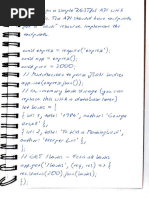 a simple RESTful API with
. The API should have endpoints
for a "book" resource. Implement the
endpoints.
const express = require('express');
const app = express();
const port = 3000;
// Middleware to parse JSON bodies
app.use(express.json());
// In-memory book storage (you can
replace this with a database later)
let books = [
{ id: 1, title: '1984', author:
{ id: 2, title: 'To Kill a Mockingbird',
author: 'Harper Lee' }
];
// GET /books - Fetch all books
app.get('/books', (req, res) => {
res.status(200).json(books);
});